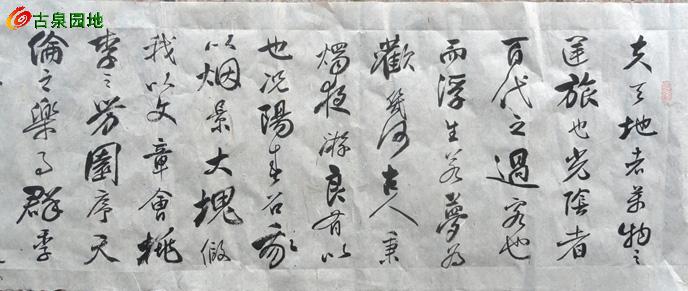 古泉园地
夫天地者萬物之
逆旅也光陰者
百代之過客也
而浮生若夢為
歡幾何古人秉
燭夜游良有以
也况陽春召我
以烟景大塊假
我以文章會桃
李之芳園序天
倫之樂事群季